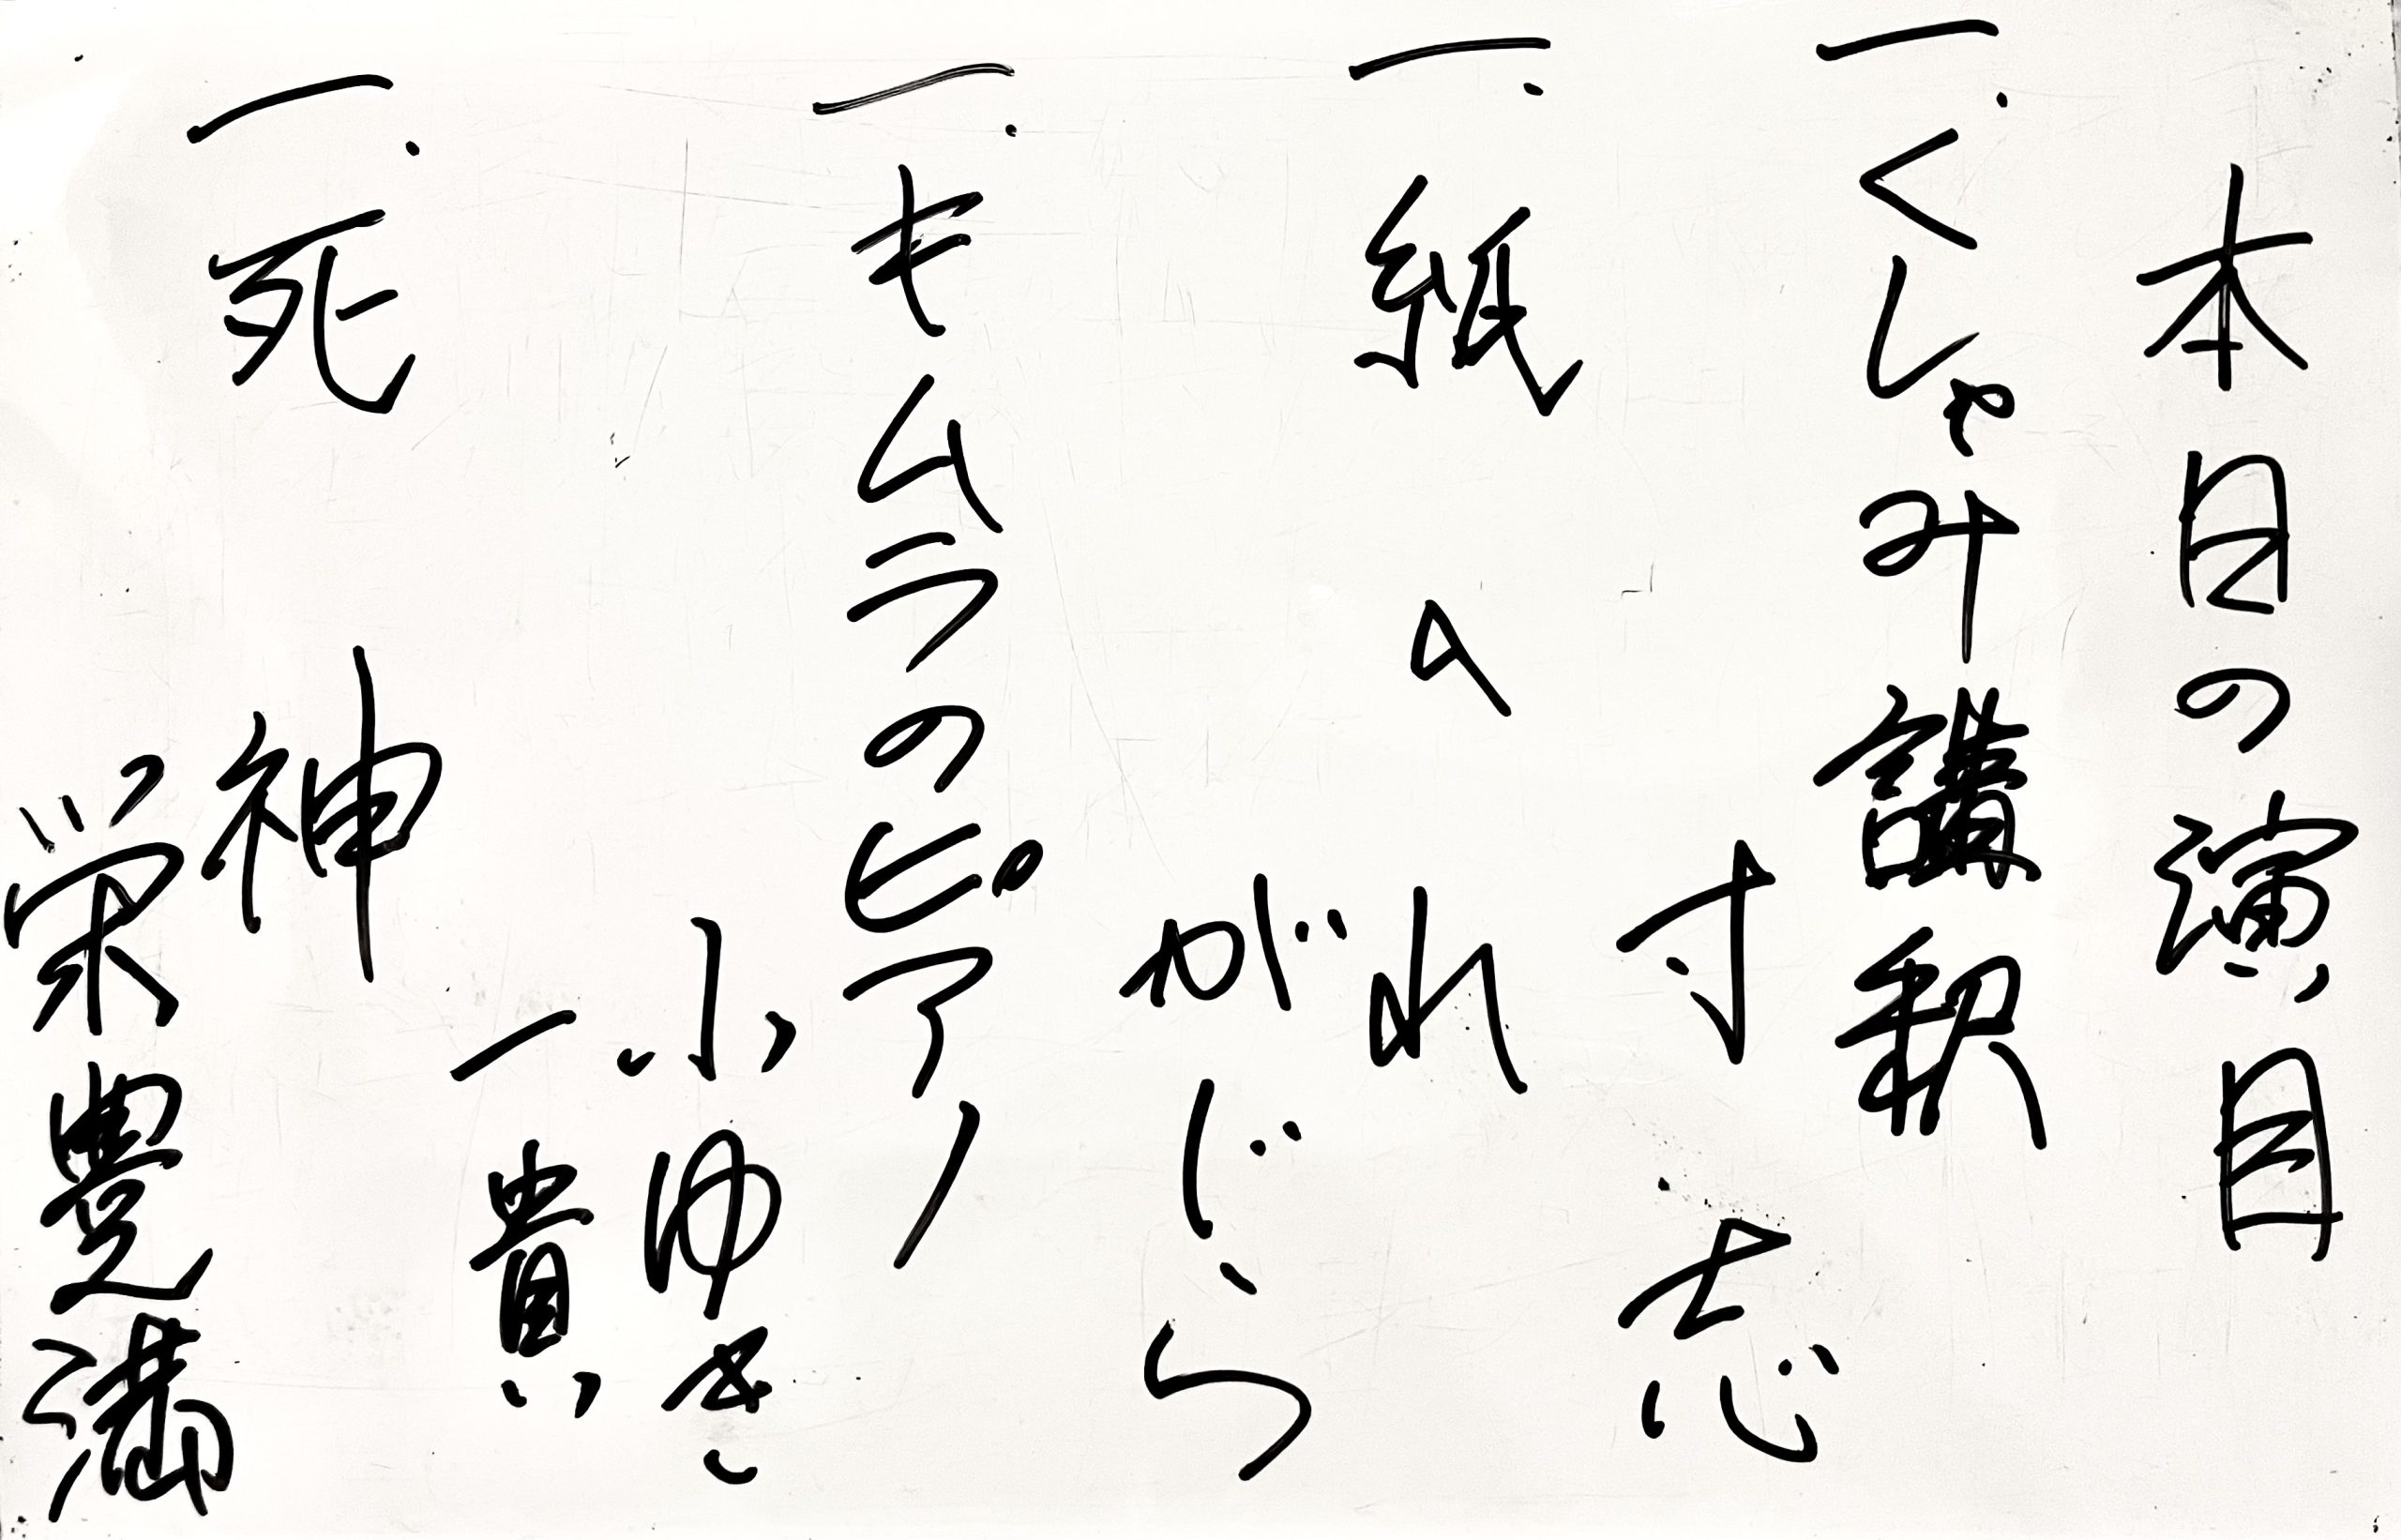 本日の演目
一.くしゃみ講釈
寸志
一.紙入れ
がじら
一.キムラのピアノ
ふゆき
一貴
一.死神
栄豊満